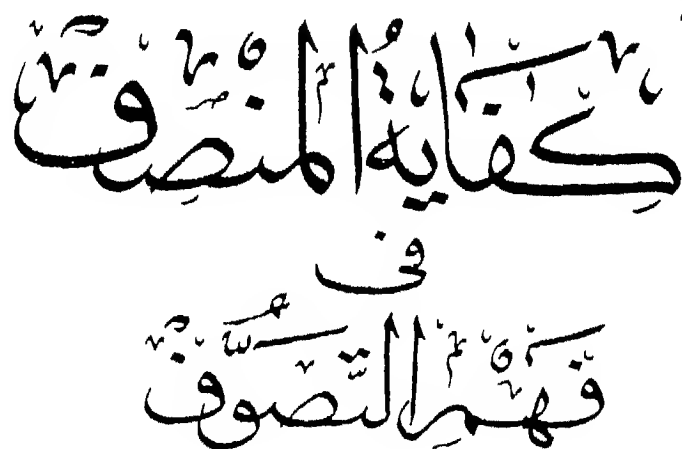 كِفَايةُ المنْصِف
فى
فَهْمِ التَّصَوُّف